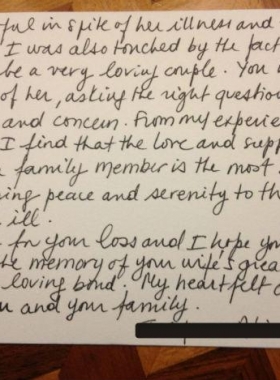 ful in spite of her illness and
I was also touched by the fact
be a very loving couple. You
of her, asking the right question
and concern. From my experie
I find that the love and supp
family member is the most
ing peace and serenity to th
ill.
for your loss and I hope you
the memory of your wife's grea
loving bond. My heartfelt c
u and your family.